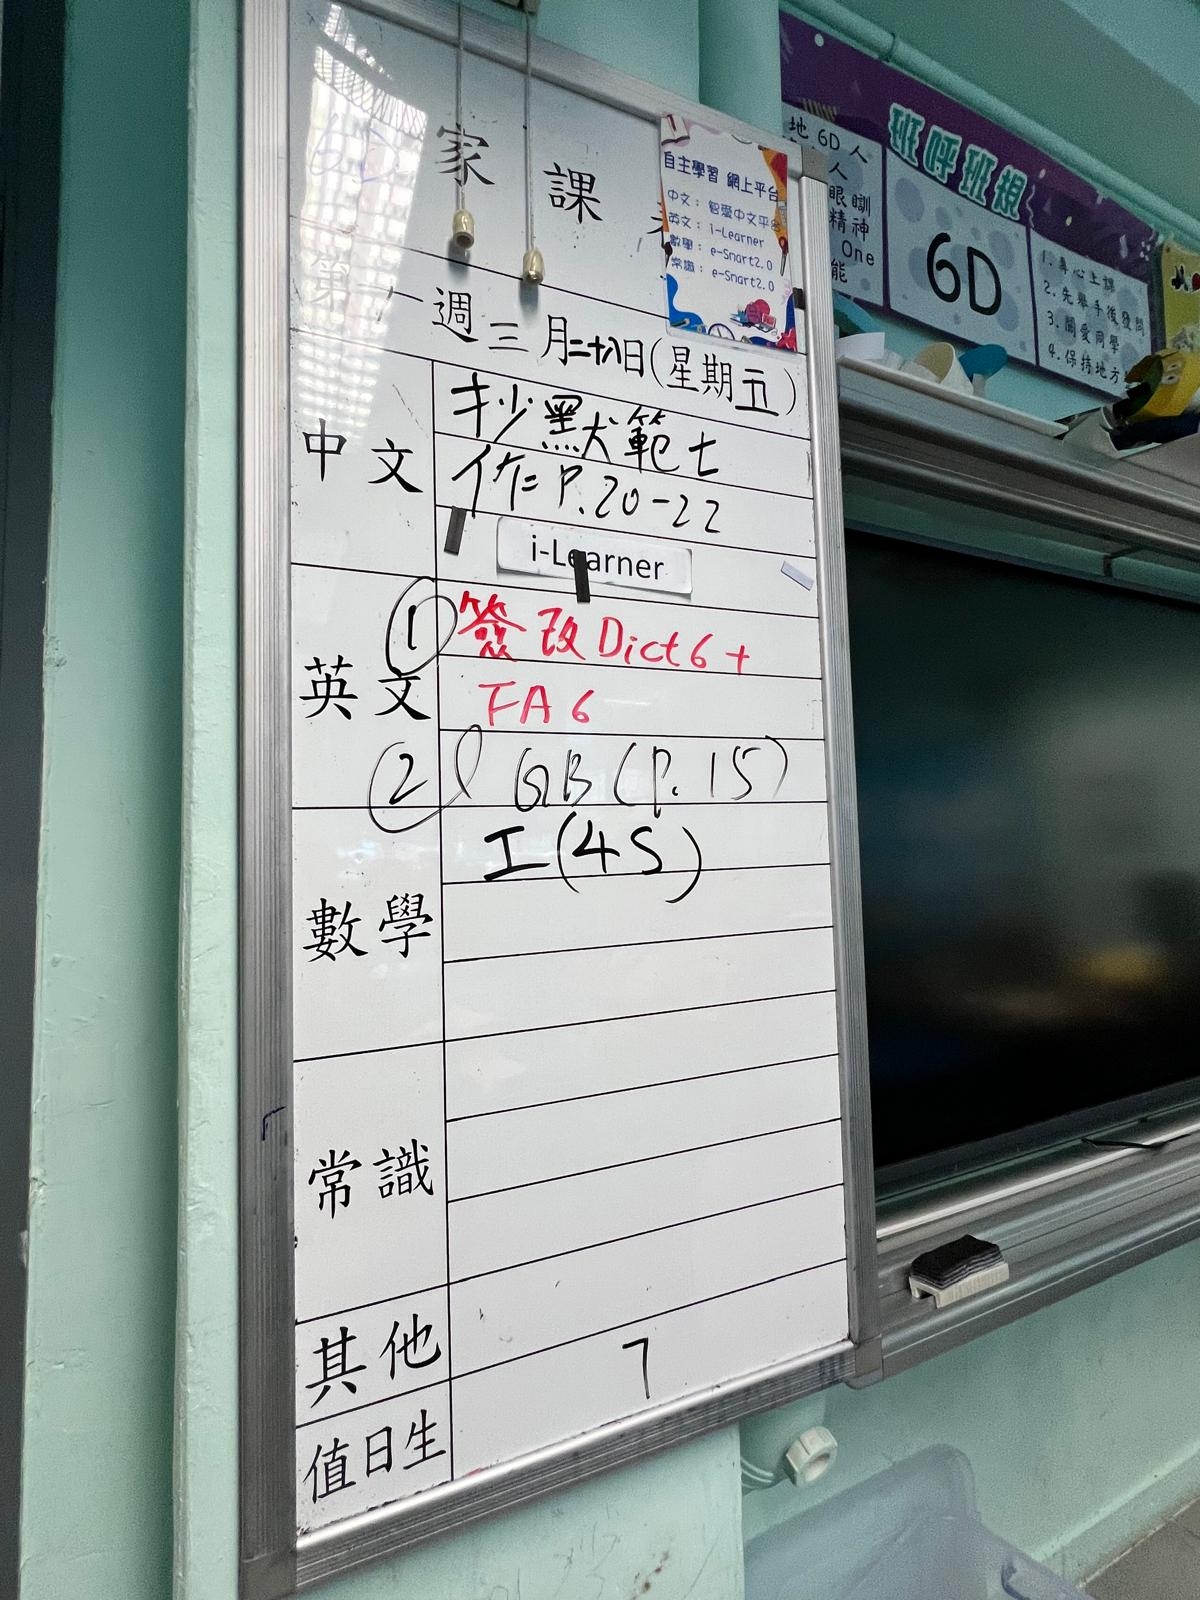 6D 家課
第一週 三月二十八日(星期五)
中文
抄默範七
作二P.20-22
i-Learner
英文
① 簽改Dict6+
FA6
② GB(P.15)
數學
工(45)
常識
其他
值日生
7
自主學習 網上平台
中文：智愛中文平台
英文：i-Learner
數學：e-Smart2.0
常識：e-Smart2.0
班呼班規
地 6D 人
人
眼瞓
精神
One
能
6D
1. 專心上課
2. 先舉手後發問
3. 關愛同學
4. 保持地方